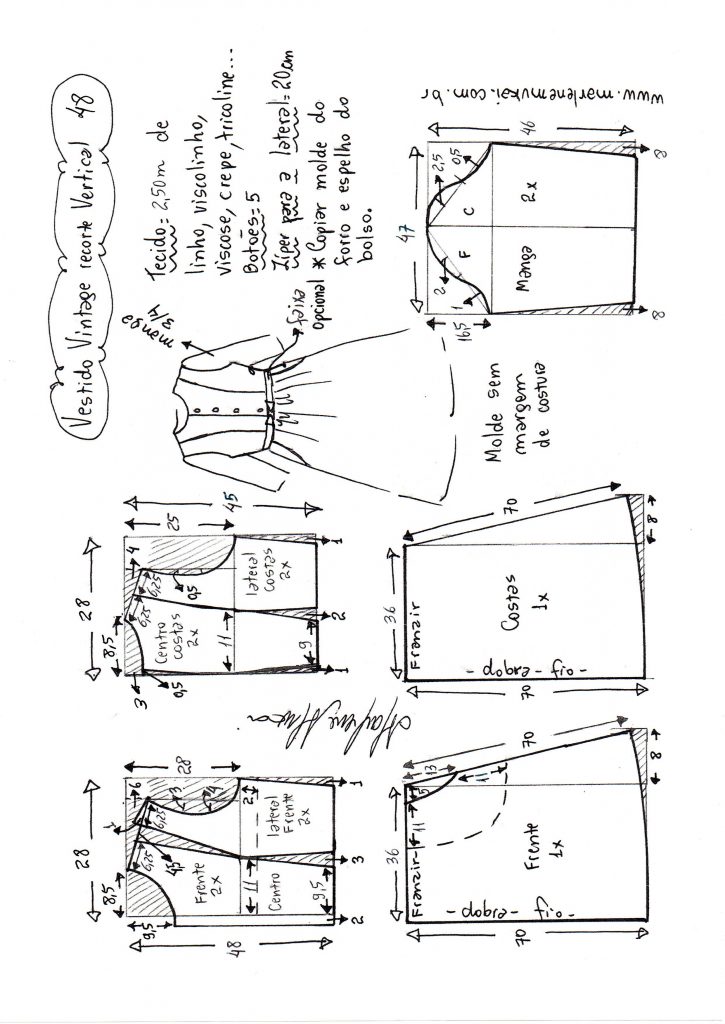 Vestido Vintage recorte Vertical 48
Tecido = 2,50m de
linho, viscolinho,
viscose, crepe, tricoline...
Botões = 5
Zíper para a lateral = 20cm
* Copiar molde do
forro e espelho do
bolso.
manga
3/4
faixa
opcional
www.marlenemukai.com.br
47
46
16,5
2,5
0,5
2
1
F
C
Manga
2x
8
8
Molde sem
margem
de costura
28
45
25
8,5
4
6,25
6,25
0,5
3
0,5
Centro
costas
2x
lateral
costas
2x
11
9
1
2
1
36
70
70
8
Franzir
Costas
1x
- dobra - fio -
Marlene Mukai
28
48
28
8,5
9,5
6
6,25
6,25
3
4
4,5
2
Frente
2x
Centro
lateral
Frente
2x
11
9,5
1
3
2
36
70
70
8
Franzir
11
5
13
11
Frente
1x
- dobra - fio -